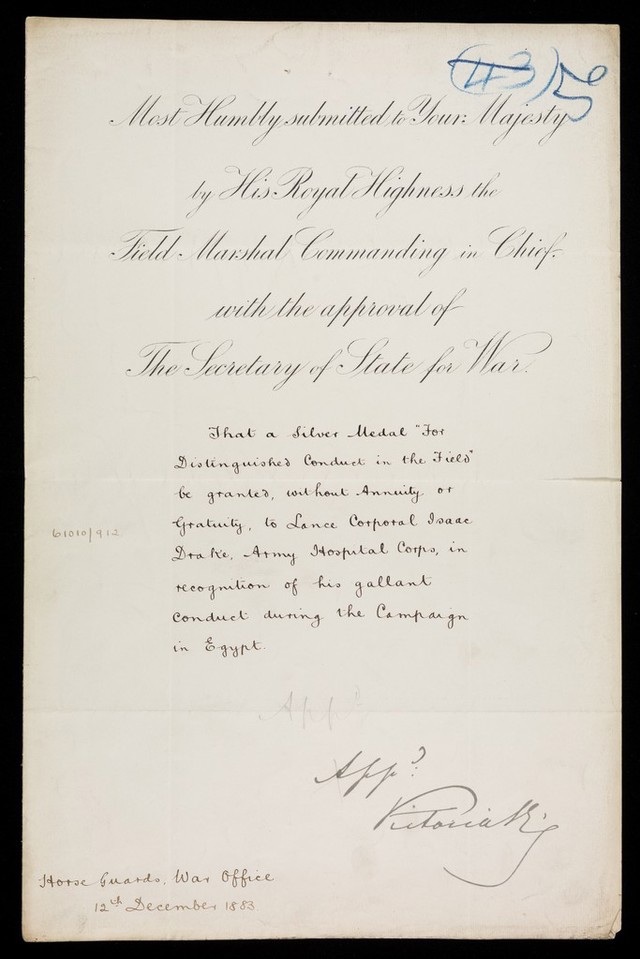 (43)
Most Humbly submitted to Your Majesty
by His Royal Highness the
Field Marshal Commanding in Chief.
with the approval of
The Secretary of State for War.
That a Silver Medal "For
Distinguished Conduct in the Field"
be granted, without Annuity or
Gratuity, to Lance Corporal Isaac
Drake, Army Hospital Corps, in
recognition of his gallant
61010/912
conduct during the Campaign
in Egypt.
Appd
Appd
Victoria R.
Horse Guards, War Office
12th December 1883